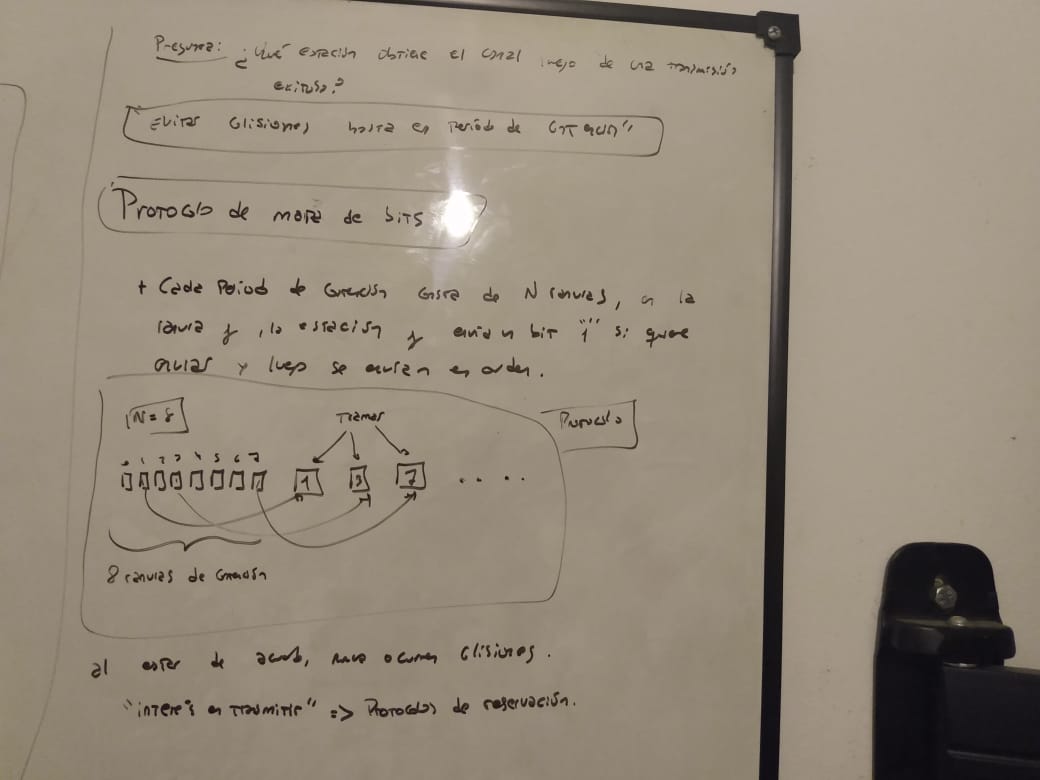 Pregunta: ¿Qué estación obtiene el canal luego de una transmisión
exitosa?
"Evitar colisiones hasta en período de contención"
Protocolo de mapa de bits
+ Cada Período de contención consta de N ranuras, en la
ranura j, la estación j envía un bit "1" si quiere
enviar y luego se envían en orden.
N = 8
Tramas
Protocolo
0 1 2 3 4 5 6 7
1 3 7 . . . .
8 ranuras de contención
al estar de acuerdo, nunca ocurren colisiones.
"interés en transmitir" => Protocolos de reservación.